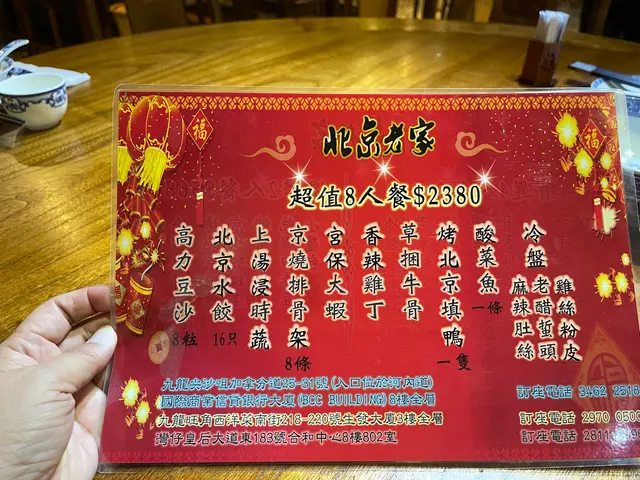 福
福
北京老家
超值8人餐$2380
冷盤
雞絲粉皮
老醋蟄頭
麻辣肚絲
酸菜魚 一條
烤北京填鴨 一隻
草捆牛骨
香辣雞丁
宮保大蝦
京燒排骨架 8條
上湯浸時蔬
北京水餃 16只
高力豆沙 8粒
九龍尖沙咀加拿分道25-31號(入口位於河內道) 訂座電話 3462 2518
國際商業信貸銀行大廈(BCC BUILDING)6樓全層
九龍旺角西洋菜南街218-220號生發大廈3樓全層 訂座電話 2970 0500
灣仔皇后大道東183號合和中心8樓802室 訂座電話 2811